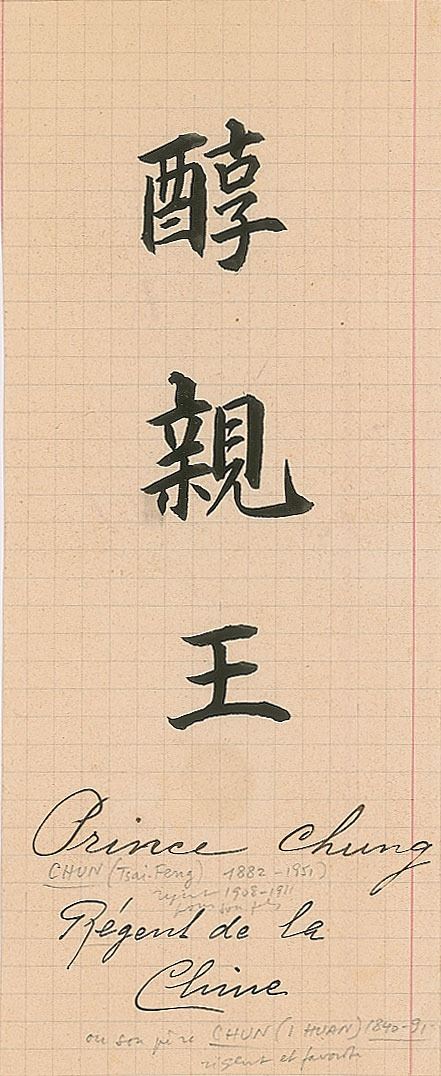 醇
親
王
Prince Chung
CHUN (Tsai-Feng) 1882-1951)
régent 1908-1911
pour son fils
Régent de la
Chine
ou son père CHUN (I HUAN) 1840-91
régent et favorite